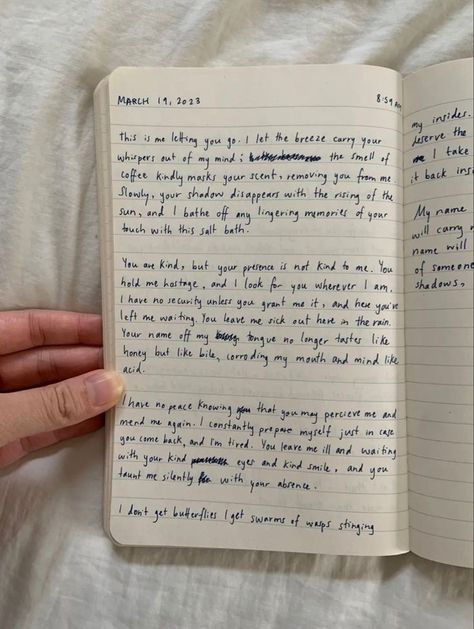 MARCH 19, 2023 8:59 AM
This is me letting you go. I let the breeze carry your
whispers out of my mind; the smell of
coffee kindly masks your scent, removing you from me
slowly, your shadow disappears with the rising of the
sun, and I bathe off any lingering memories of your
touch with this salt bath.
You are kind, but your presence is not kind to me. You
hold me hostage, and I look for you wherever I am.
I have no security unless you grant me it, and here you've
left me waiting. You leave me sick out here in the rain.
Your name off my tongue no longer tastes like
honey but like bile, corroding my mouth and mind like
acid.
I have no peace knowing that you may percieve me and
mend me again. I constantly prepare myself just in case
you come back, and I'm tired. You leave me ill and waiting
with your kind eyes and kind smile, and you
taunt me silently with your absence.
I don't get butterflies I get swarms of wasps stinging
my insides.
deserve the
I take
it back insi
My name
will carry
name will
of someone
shadows,